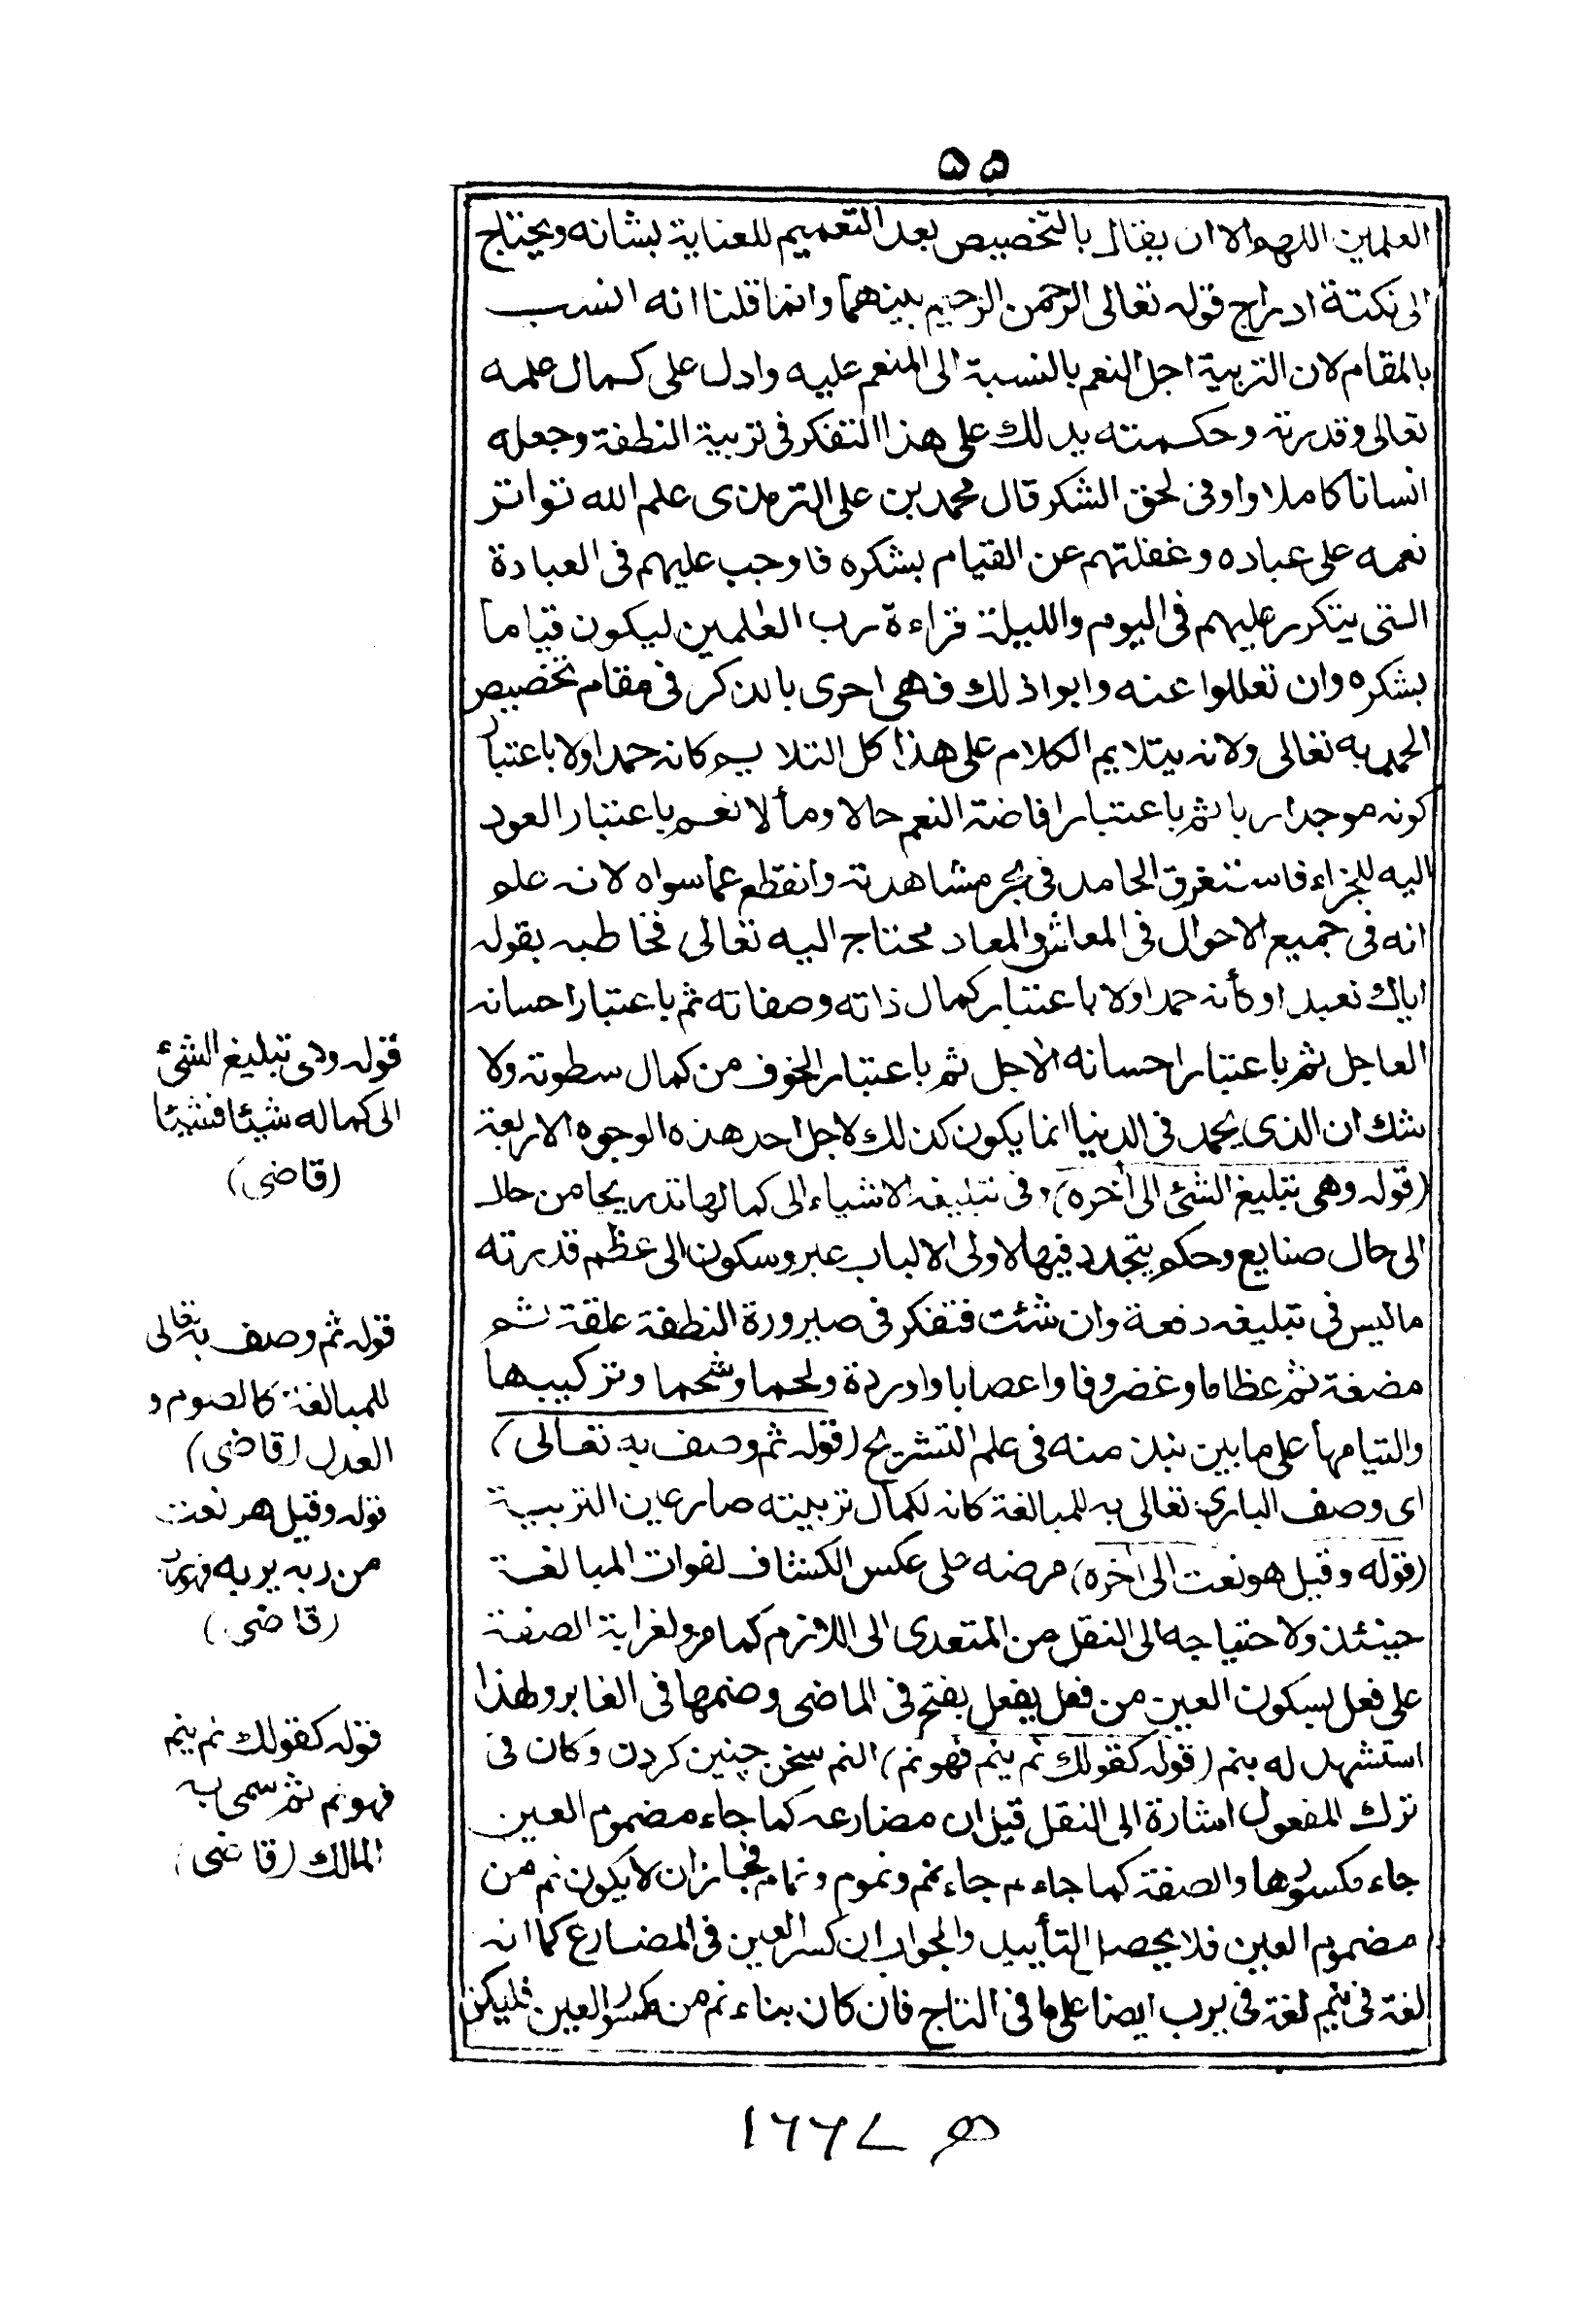 ٥٥
العلمين اللهم الا ان يقال بالتخصيص بعد التعميم للعناية بشانه ويحتاج
الى نكتة ادراج قوله تعالى الرحمن الرحيم بينهما وانما قلنا انه انسب
بالمقام لان التربية اجل النعم بالنسبة الى المنعم عليه وادل على كمال علمه
تعالى وقدرته وحكمته يدلك على هذا التفكر فى تربية النطفة وجعله
انسانا كاملا واوفى لحق الشكر قال محمد بن على الترمذى علم الله تواتر
نعمه على عباده وغفلتهم عن القيام بشكره فاوجب عليهم فى العبادة
التى يتكرر عليهم فى اليوم والليلة قراءة رب العلمين ليكون قياما
بشكره وان تعللوا عنه وابوا ذلك فهى احرى بالذكر فى مقام تخصيص
الحمد به تعالى ولانه يتلايم الكلام على هذا كل التلايم كانه حمد اولا باعتبار
كونه موجدا ربا ثم باعتبار افاضة النعم حالا ومألا نعم باعتبار العود
اليه للجزاء فاستغرق الحامد فى بحر مشاهدته وانقطع عما سواه لانه علم
انه فى جميع الاحوال فى المعاش والمعاد محتاج اليه تعالى فخاطبه بقوله
اياك نعبد او كأنه حمد اولا باعتبار كمال ذاته وصفاته ثم باعتبار احسانه
العاجل ثم باعتبار احسانه الأجل ثم باعتبار الخوف من كمال سطوته ولا
شك ان الذى يحمد فى الدنيا انما يكون كذلك لاجل احد هذه الوجوه الاربعة
(قوله وهى تبليغ الشئ الى أخره) وفى تبليغه الاشياء الى كمالها تدريجا من حال
الى حال صنايع وحكم يتجدد فيها لاولى الالباب عبر وسكون الى عظم قدرته
ماليس فى تبليغه دفعة وان شئت فتفكر فى صيرورة النطفة علقة ثم
مضغة ثم عظاما وغضروفا واعصابا واوردة ولحما وشحما وتركيبها
والتيامها على ما بين نبذ منه فى علم التشريح (قوله ثم وصف به تعالى)
اى وصف البارئ تعالى به للمبالغة كانه لكمال تربيته صار عين التربية
(قوله وقيل هو نعت الى أخره) مرضه على عكس الكشاف لفوات المبالغة
حينئذ ولاحتياجه الى النقل من المتعدى الى اللازم كما مر ولغرابة الصفة
على فعل بسكون العين من فعل يفعل بفتح فى الماضى وضمها فى الغابر ولهذا
استشهد له بنم (قوله كقولك نم ينم فهو نم) النم سخن چينين كردن وكان فى
ترك المفعول اشارة الى النقل قيل ان مضارعه كما جاء مضموم العين
جاء مكسورها والصفة كما جاء نم جاء نمم ونموم ونمام فجاز ان لايكون نم من
مضموم العين فلا يحصل التأييد والجواب ان كسر العين فى المضارع كما انه
لغة فى ينم لغة فى يرب ايضا على ما فى التاج فان كان بناء نم من مكسور العين فليكن
قوله وهى تبليغ الشئ
الى كماله شيئا فشيئا
(قاضى)
قوله ثم وصف به تعالى
للمبالغة كالصوم و
العدل (قاضى)
قوله وقيل هو نعت
من ربه يربه فهو رب
(قاضى)
قوله كقولك نم ينم
فهو نم ثم سمى به
المالك (قاضى)